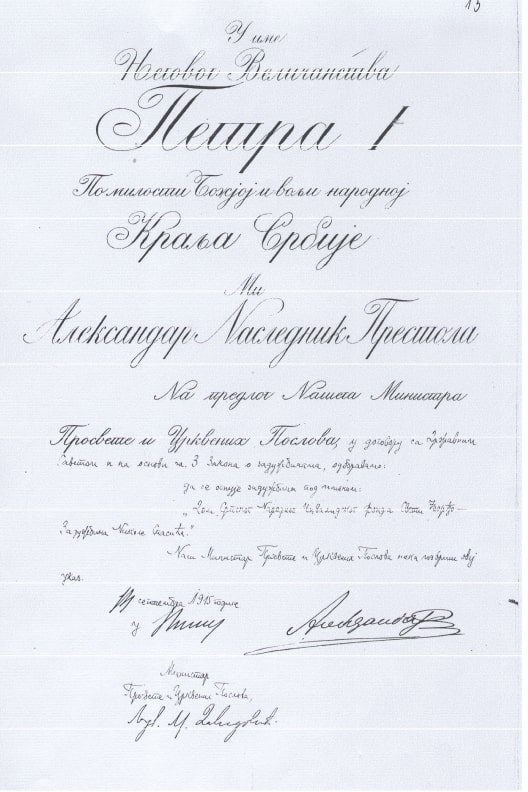 13
У име
Његовог Величанства
Петра I
По милости Божјој и вољи народној
Краља Србије
Ми
Александар Наследник Престола
На предлог Нашега Министра
Просвете и Црквених Послова, у договору са Државним
Саветом и на основи чл. 3 Закона о задужбинама, одобравамо:
да се оснује задужбина под именом:
„Дом Српског Народног Инвалидског фонда Свети Ђорђе –
Задужбина Николе Спасића.“
Наш Министар Просвете и Црквених Послова нека изврши овај
указ.
септембра 1915 године
у Нишу
Александар
Министар
Просвете и Црквених Послова,
Љуб. М. Давидовић.